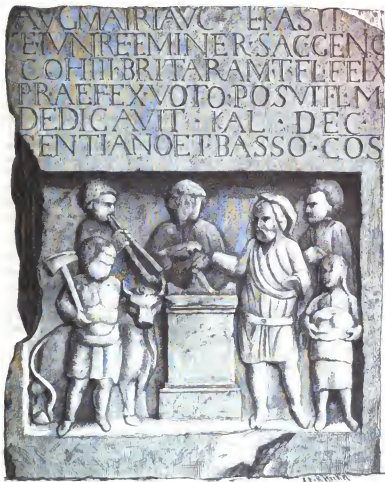 AVGMATRIAVG EKASTI
ETIVNREEMINER·SACGENC
COHIII·BRITARAMT·FL·FELX
PRAEFEX·VOTO·POSVITLM
DEDICAVIT·KAL·DEC
ENTIANOETBASSO·COS